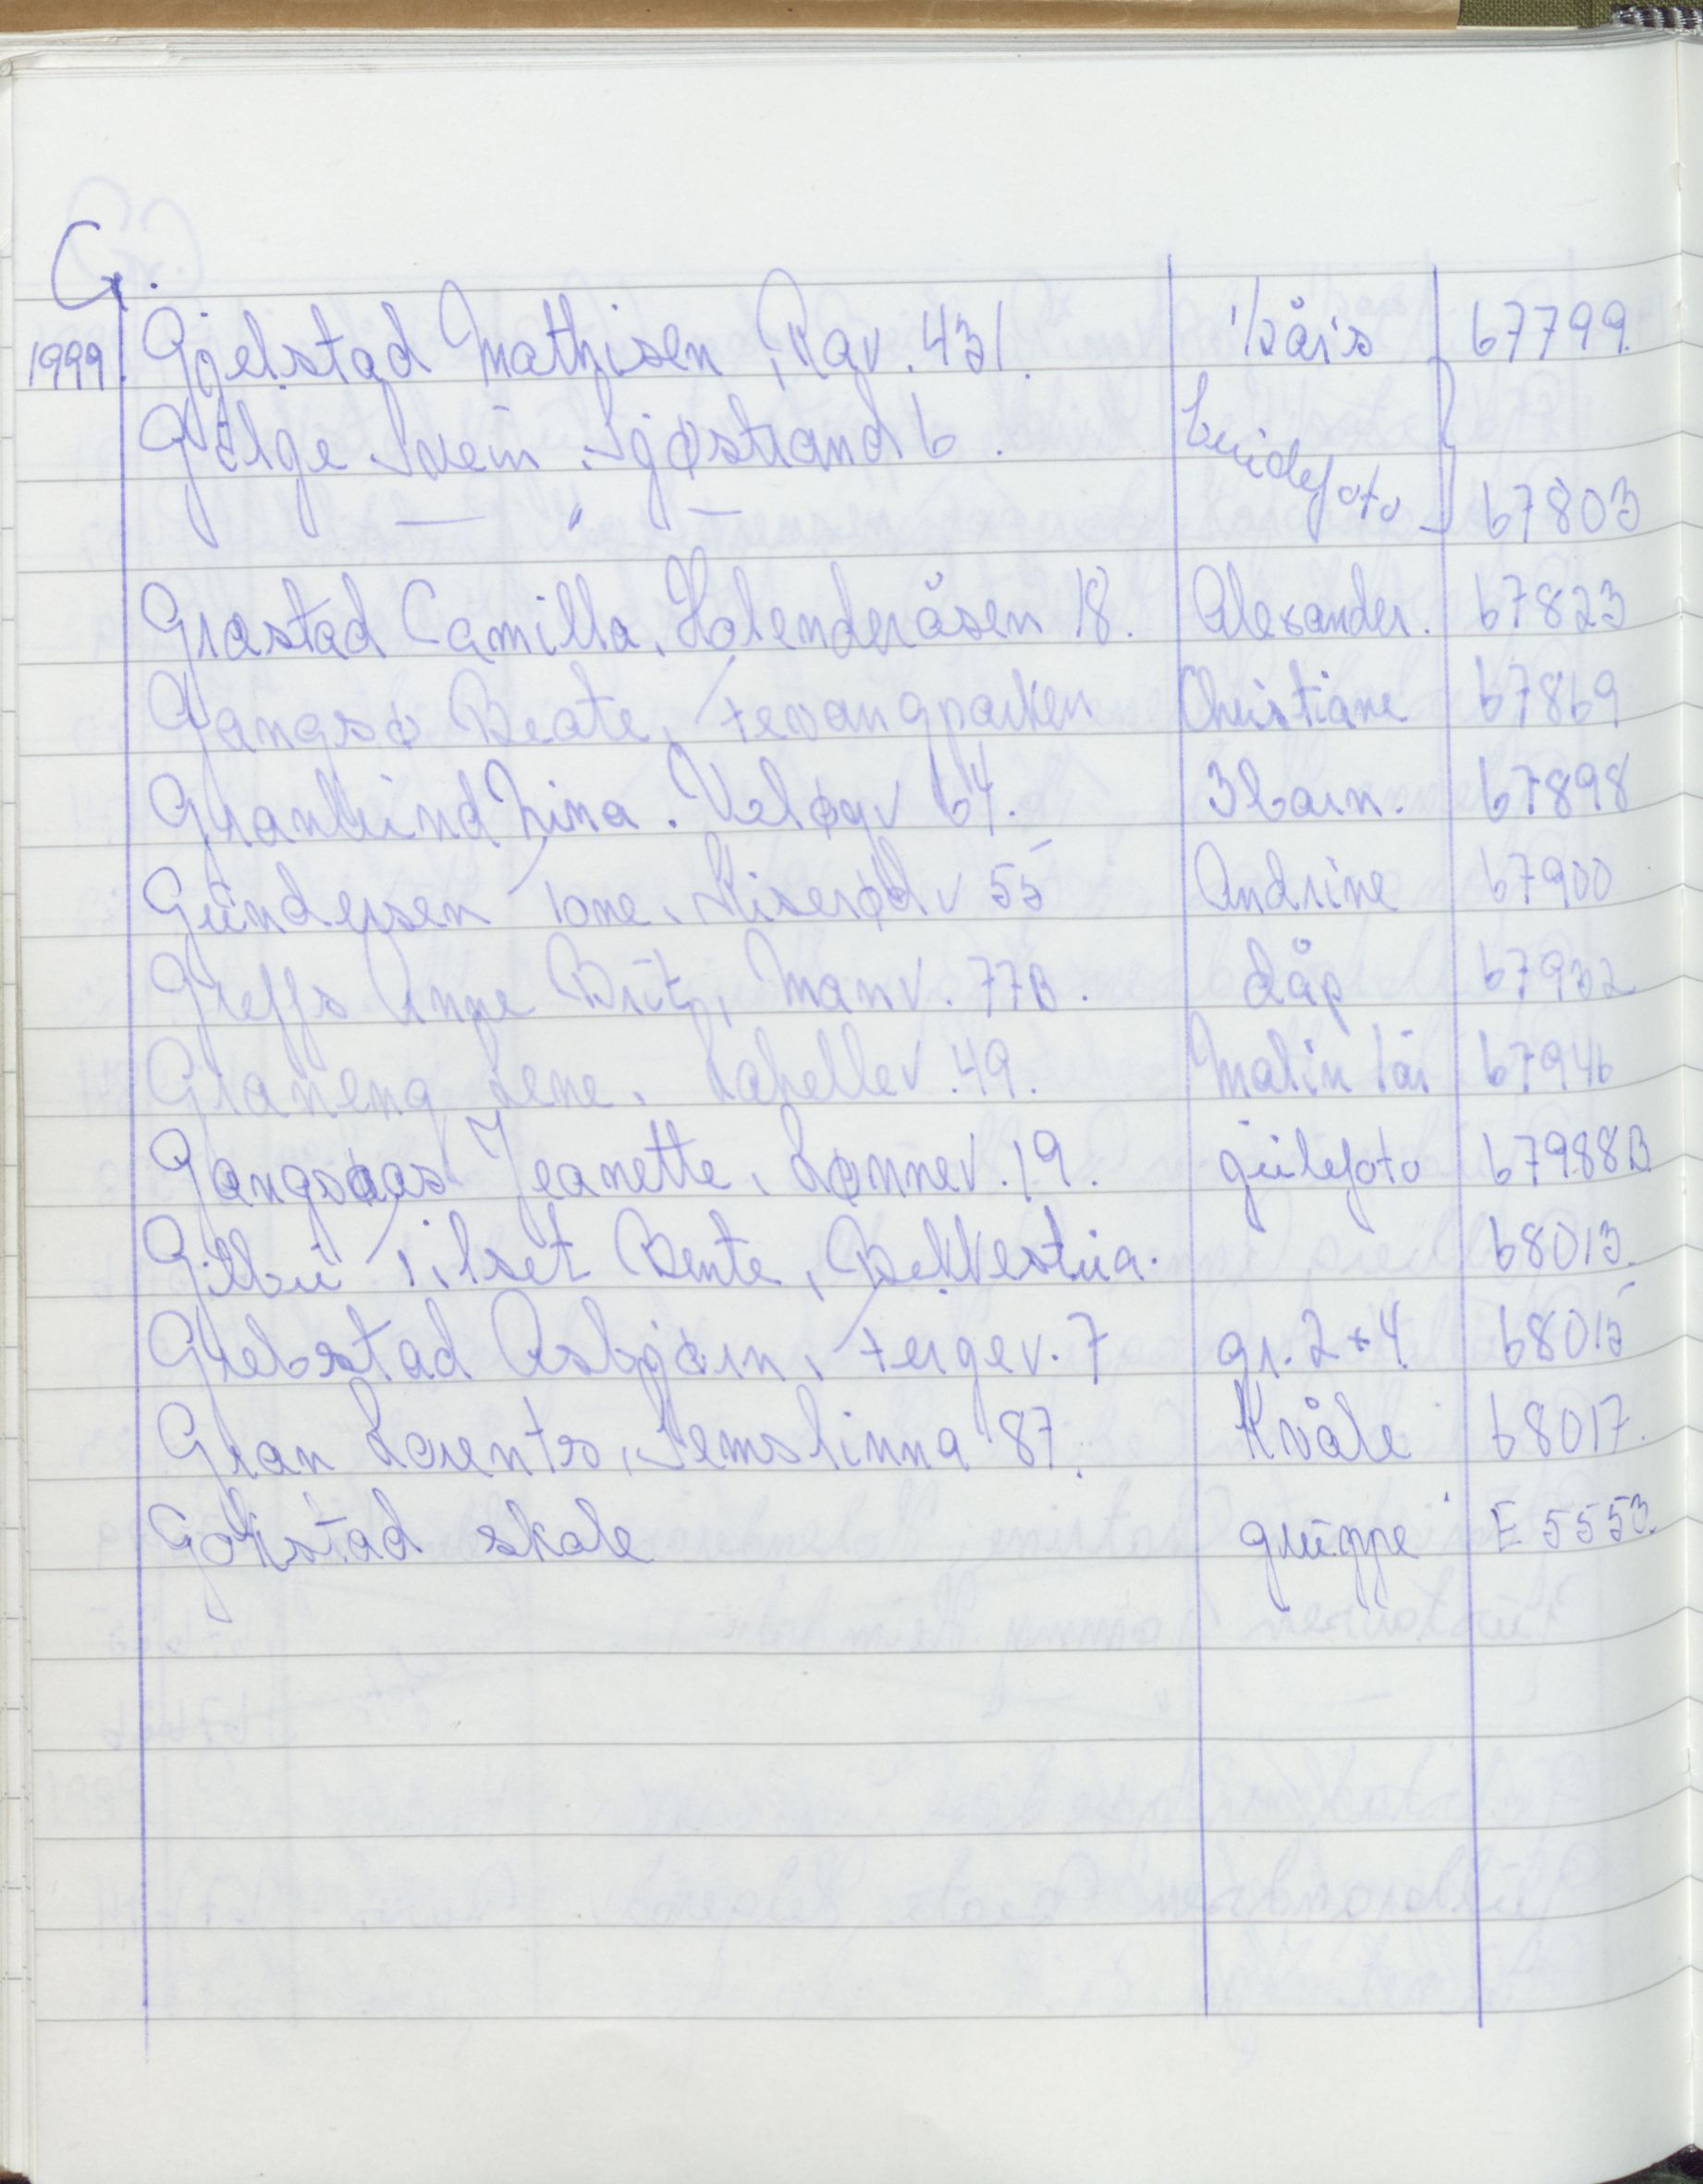 G.
1999. Gjelstad Mathisen, Rav. 431. 1/2 års 67799.
Gjelge Svein, Sjøstrand 6. brudefoto
— " — 67803
Grastad Camilla, Kolenderåsen 18. Alexander. 67823
Gangsø Beate, Fevangparken Christiane 67869
Granlund Nina. Veløyv 64. 3 barn. 67898
Gundersen Tone, Skiserødv 55 Andrine 67900
Greffs Anne Brit, Manv. 77B. dåp 67932
Graneng Lene. Kapellev. 49. Malin 1 år 67946
Gangsaas Jeanette, Lønnev. 19. gulefoto 67988B
Gilbu Tilset Bente, Bekkestua. 68013.
Grebstad Asbjørn, Fergev. 7 gr. 2 + 4. 68015
Gran Lorents, Semslinna 87. Kvåle 68017.
Gokstad skole gruppe E 5553.